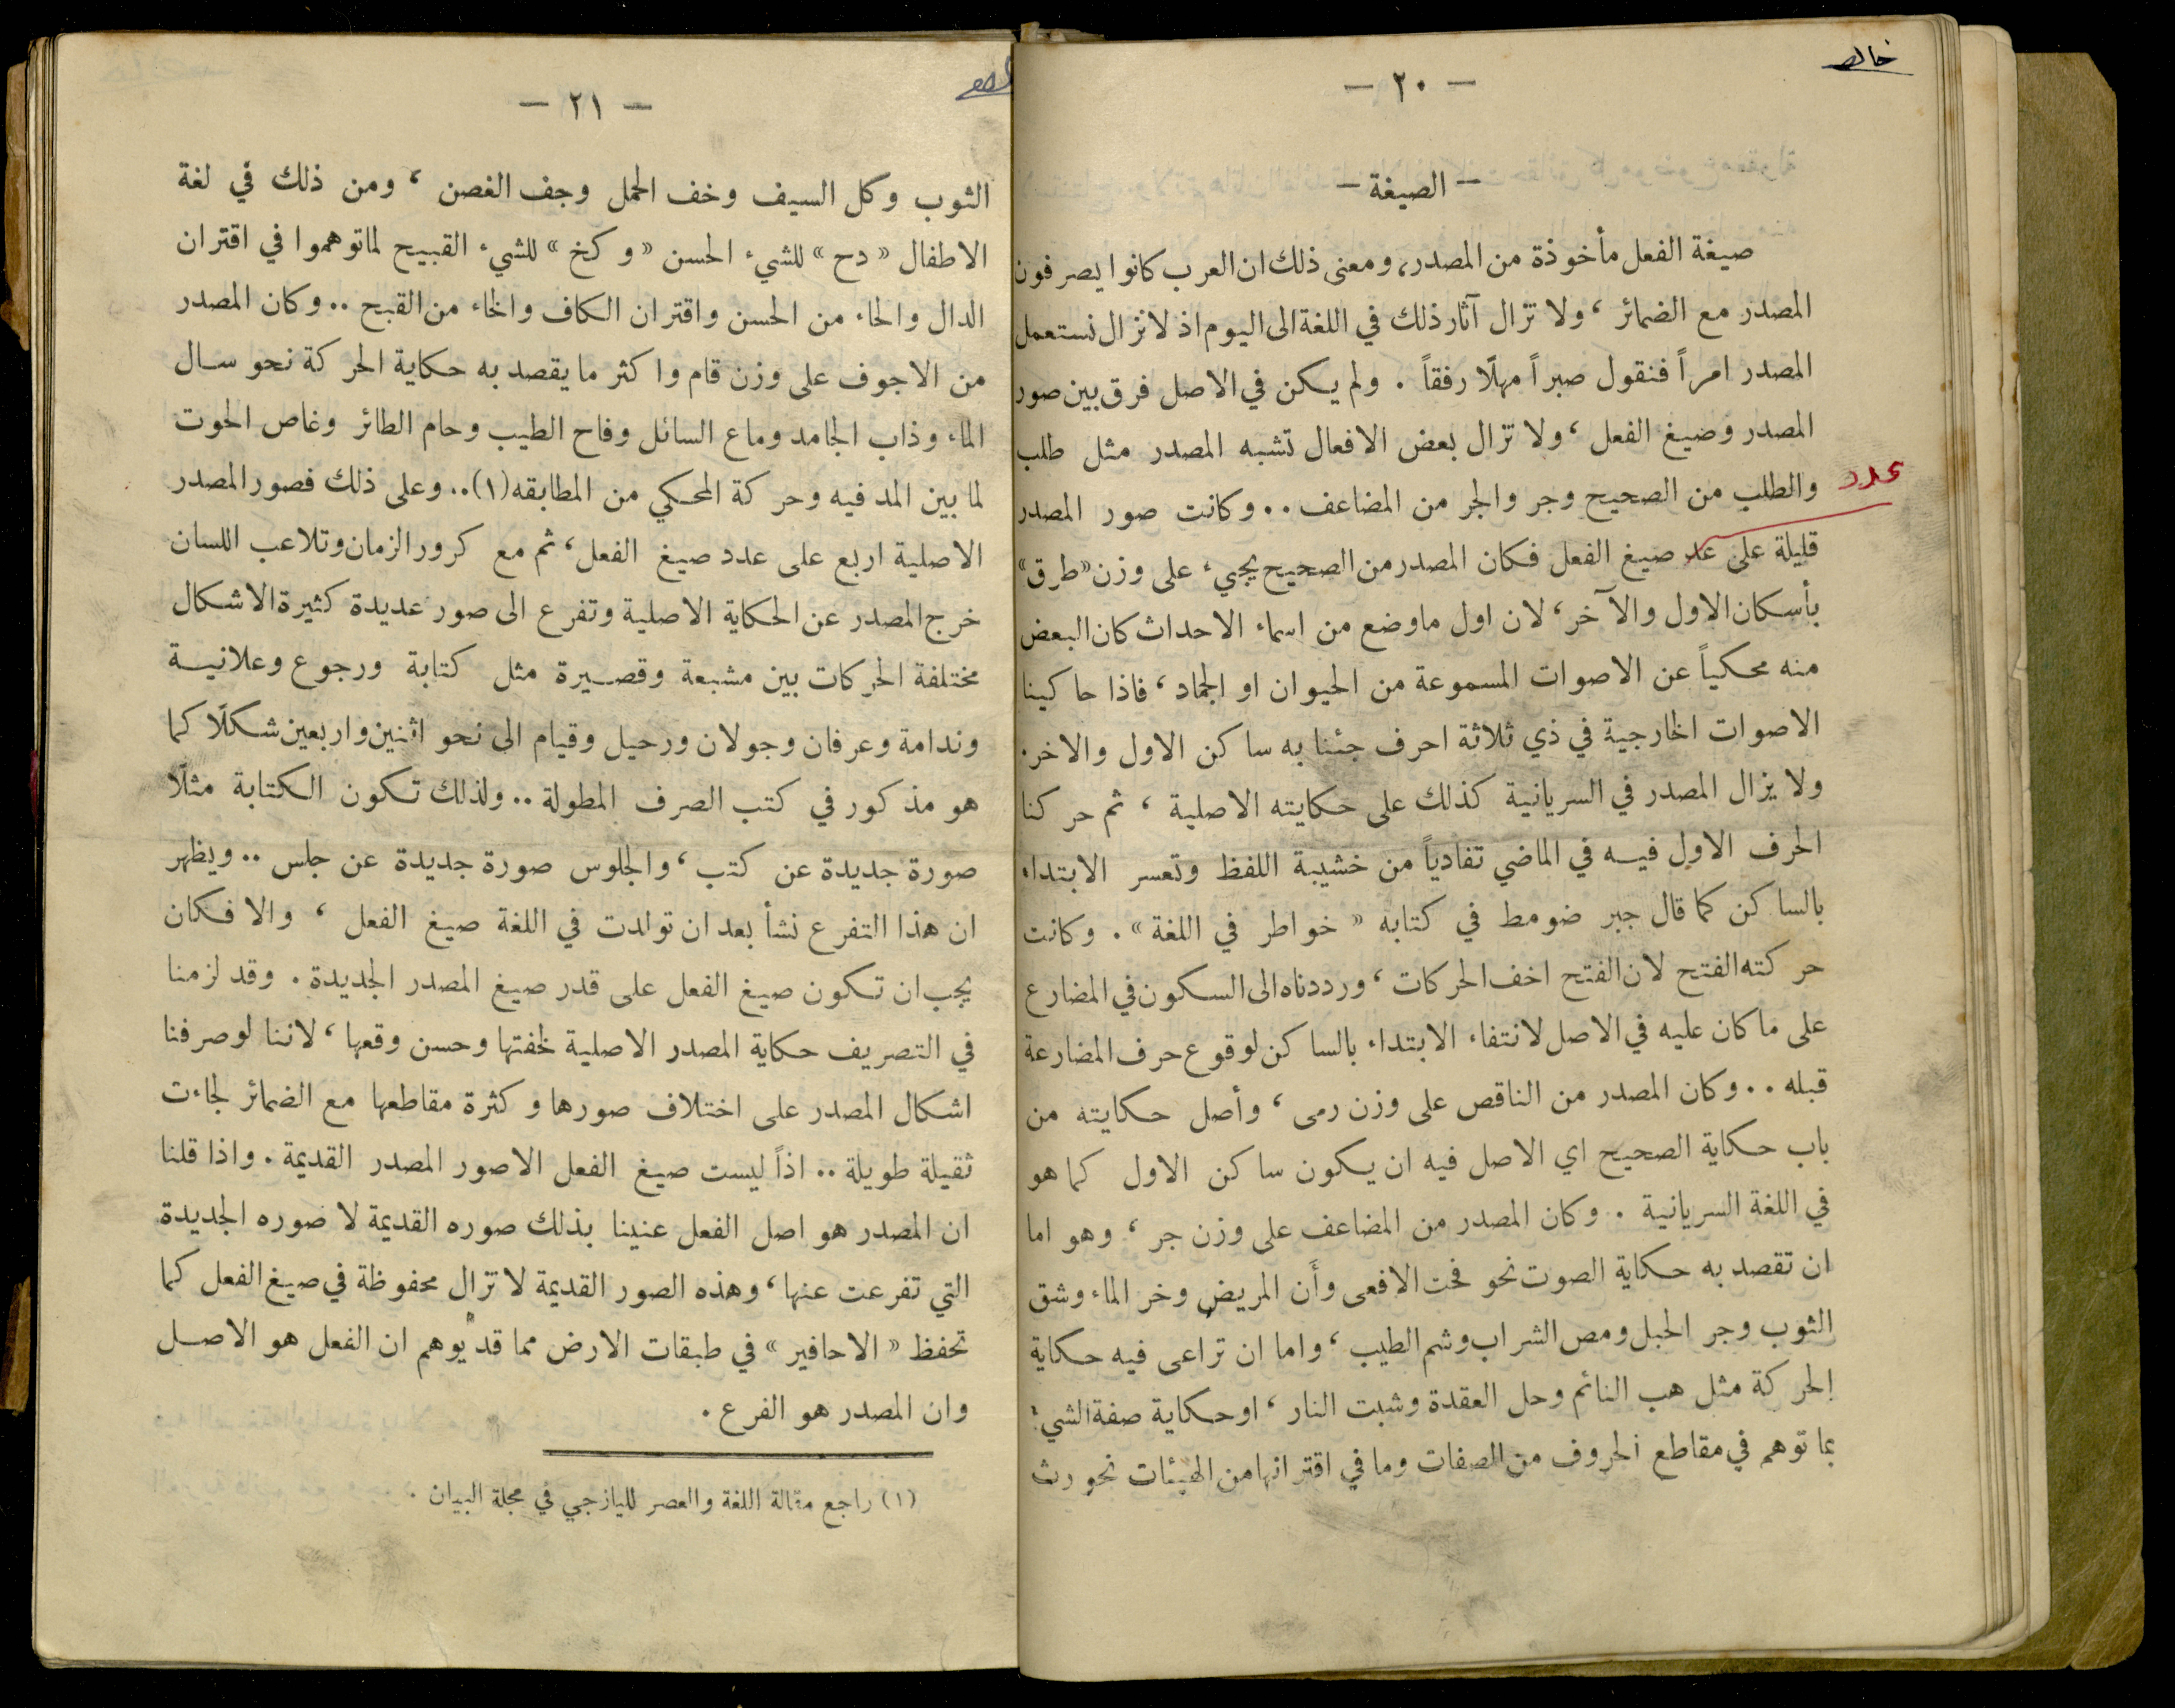 خالد
— ٢٠ —
— الصيغة —
صيغة الفعل مأخوذة من المصدر، ومعنى ذلك ان العرب كانوا يصرفون
المصدر مع الضمائر ، ولا تزال آثار ذلك في اللغة الى اليوم اذ لا نزال نستعمل
المصدر امراً فنقول صبراً مهلًا رفقاً . ولم يكن في الاصل فرق بين صور
المصدر وصيغ الفعل ، ولا تزال بعض الافعال تشبه المصدر مثل طلب
والطلب من الصحيح وجر والجر من المضاعف .. وكانت صور المصدر
عدد
قليلة على عد صيغ الفعل فكان المصدر من الصحيح يجيء على وزن «طرق»
بأسكان الاول والآخر ، لان اول ما وضع من اسماء الاحداث كان البعض
منه محكياً عن الاصوات المسموعة من الحيوان او الجماد ، فاذا حاكينا
الاصوات الخارجية في ذي ثلاثة احرف جئنا به ساكن الاول والاخر.
ولا يزال المصدر في السريانية كذلك على حكايته الاصلية ، ثم حركنا
الحرف الاول فيه في الماضي تفادياً من خشيبة اللفظ وتعسر الابتداء
بالساكن كما قال جبر ضومط في كتابه « خواطر في اللغة » . وكانت
حركته الفتح لان الفتح اخف الحركات ، ورددناه الى السكون في المضارع
على ما كان عليه في الاصل لانتفاء الابتداء بالساكن لوقوع حرف المضارعة
قبله .. وكان المصدر من الناقص على وزن رمى ، وأصل حكايته من
باب حكاية الصحيح اي الاصل فيه ان يكون ساكن الاول كما هو
في اللغة السريانية . وكان المصدر من المضاعف على وزن جر ، وهو اما
ان تقصد به حكاية الصوت نحو فحت الافعى وأن المريض وخر الماء وشق
الثوب وجر الحبل ومص الشراب وشم الطيب ، واما ان تراعى فيه حكاية
الحركة مثل هب النائم وحل العقدة وشبت النار ، او حكاية صفة الشيء
بما توهم في مقاطع الحروف من الصفات وما في اقترانها من الهيئات نحو رث
— ٢١ —
الثوب وكل السيف وخف الحمل وجف الغصن ، ومن ذلك في لغة
الاطفال « دح » للشيء الحسن « و كخ » للشيء القبيح لما توهموا في اقتران
الدال والحاء من الحسن واقتران الكاف والخاء من القبح .. وكان المصدر
من الاجوف على وزن قام واكثر ما يقصد به حكاية الحركة نحو سال
الماء وذاب الجامد وماع السائل وفاح الطيب وحام الطائر وغاص الحوت
لما بين المد فيه وحركة المحكي من المطابقه (١).. وعلى ذلك فصور المصدر
الاصلية اربع على عدد صيغ الفعل ، ثم مع كرور الزمان وتلاعب اللسان
خرج المصدر عن الحكاية الاصلية وتفرع الى صور عديدة كثيرة الاشكال
مختلفة الحركات بين مشبعة وقصيرة مثل كتابة ورجوع وعلانية
وندامة وعرفان وجولان ورحيل وقيام الى نحو اثنين واربعين شكلًا كما
هو مذكور في كتب الصرف المطولة .. ولذلك تكون الكتابة مثلًا
صورة جديدة عن كتب ، والجلوس صورة جديدة عن جلس .. ويظهر
ان هذا التفرع نشأ بعد ان تولدت في اللغة صيغ الفعل ، والا فكان
يجب ان تكون صيغ الفعل على قدر صيغ المصدر الجديدة . وقد لزمنا
في التصريف حكاية المصدر الاصلية لخفتها وحسن وقعها ، لاننا لو صرفنا
اشكال المصدر على اختلاف صورها وكثرة مقاطعها مع الضمائر لجاءت
ثقيلة طويلة .. اذاً ليست صيغ الفعل الا صور المصدر القديمة . واذا قلنا
ان المصدر هو اصل الفعل عنينا بذلك صوره القديمة لا صوره الجديدة
التي تفرعت عنها ، وهذه الصور القديمة لا تزال محفوظة في صيغ الفعل كما
تحفظ « الاحافير » في طبقات الارض مما قد يوهم ان الفعل هو الاصل
وان المصدر هو الفرع .
(١) راجع مقالة اللغة والعصر لليازجي في مجلة البيان .